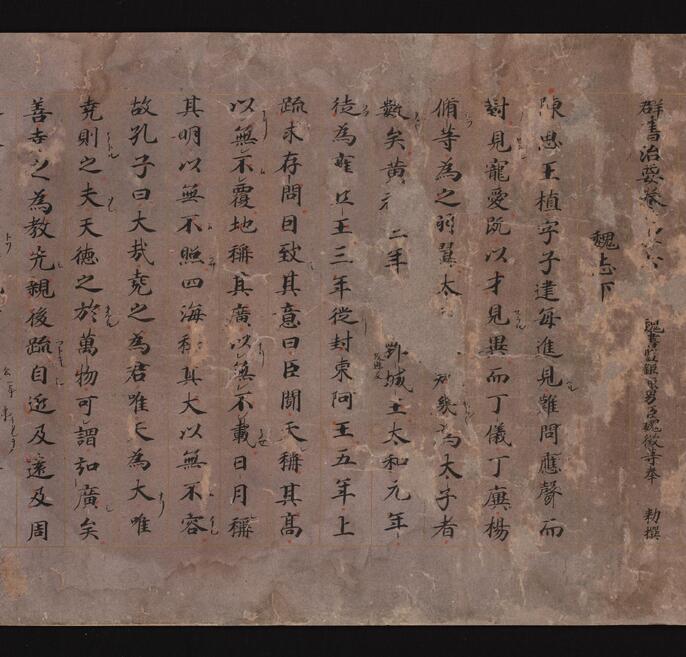 群書治要卷
秘書監鉅鹿男臣魏徵等奉 勅撰
魏志下
陳思王植字子建每進見難問應聲而
對見寵愛既以才見異而丁儀丁廙楊
脩等為之羽翼太 幾為太子者
數矣黃 二年 鄄城王太和元年
徒為雍丘王三年從封東阿王五年上
疏求存問因致其意曰臣聞天稱其高
以無不覆地稱其廣以無不載日月稱
其明以無不照四海稱其大以無不容
故孔子曰大哉堯之為君唯天為大唯
堯則之夫天德之於萬物可謂弘廣矣
善堯之為教先親後疏自近及遠及周